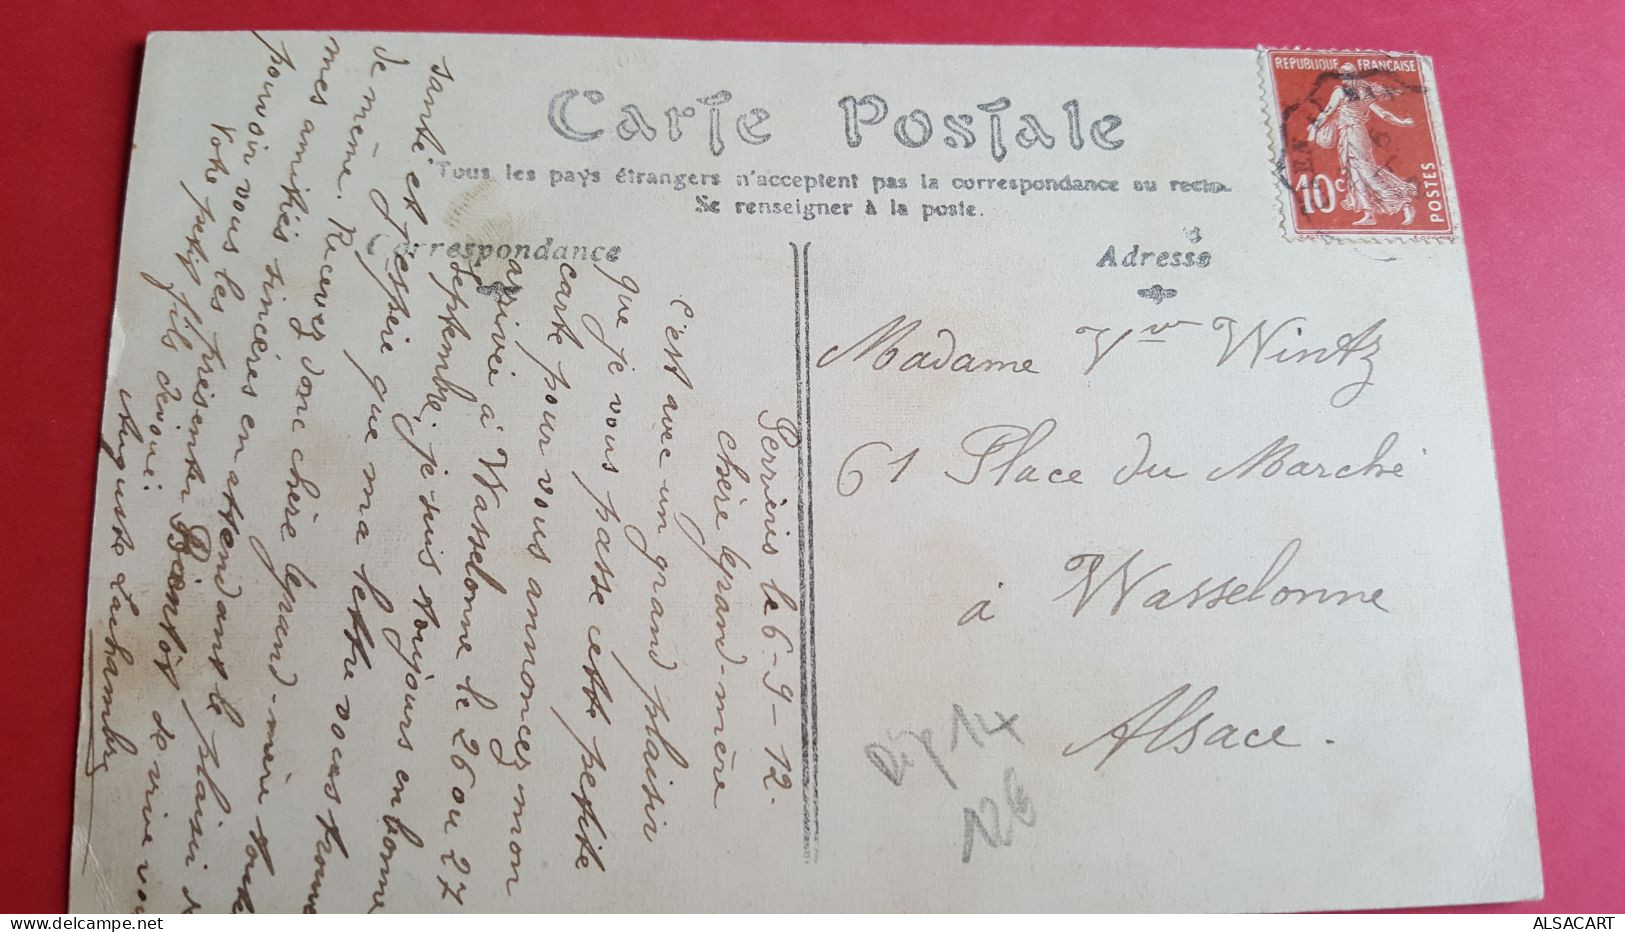 Carte Postale
Tous les pays étrangers n'acceptent pas la correspondance au recto.
Se renseigner à la poste.
Correspondance
Adresse
REPUBLIQUE FRANÇAISE
10c
POSTES
Madame Vve Wintz
61 Place du Marché
à Wasselonne
Alsace.
le 6-9-12.
Chère Grand-mère
C'est avec un grand plaisir
que je vous passe cette petite
carte pour vous annoncez mon
arrivée à Wasselonne le 26 ou 27
Septembre. je suis toujours en bonne
santé et j'espère que ma lettre vous trouve
de même. Recevez donc chère Grand-mère toute
mes amitiés sincères en attendant le plaisir de
pouvoir vous les présenter Bientôt de vive voi
Votre petit fils dévoué
Auguste Lachambre
126
ALSACART